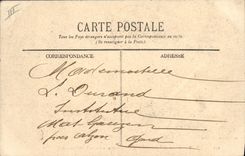 CARTE POSTALE
Tous les Pays étrangers n'acceptent pas la Correspondance au recto.
(Se renseigner à la Poste).
CORRESPONDANCE ADRESSE
Mademoiselle
L. Durand
Institutrice
Mas
près Alzon
Gard